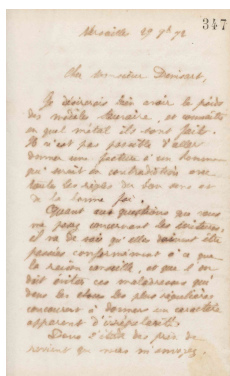 347
Marseille 29 9bre 72
Cher Monsieur Denisart,
Je désirerais bien avoir le poids
des modèles Lemaire, et connaître
en quel métal ils sont faits.
Il n'est pas possible d'aller
donner une facture à un homme
qui serait en contradiction avec
toutes les règles du bon sens ou
de la bonne foi.
Quant aux questions que vous
me posez concernant les écritures,
il va de soi qu'elles doivent être
passées conformément à ce que
la raison conseille, et que l'on
doit éviter ces maladresses qui
dans les choses les plus régulières
concourent à donner un caractère
apparent d'irrégularité.
Dans l'état des prix de
revient que vous m'envoyez,